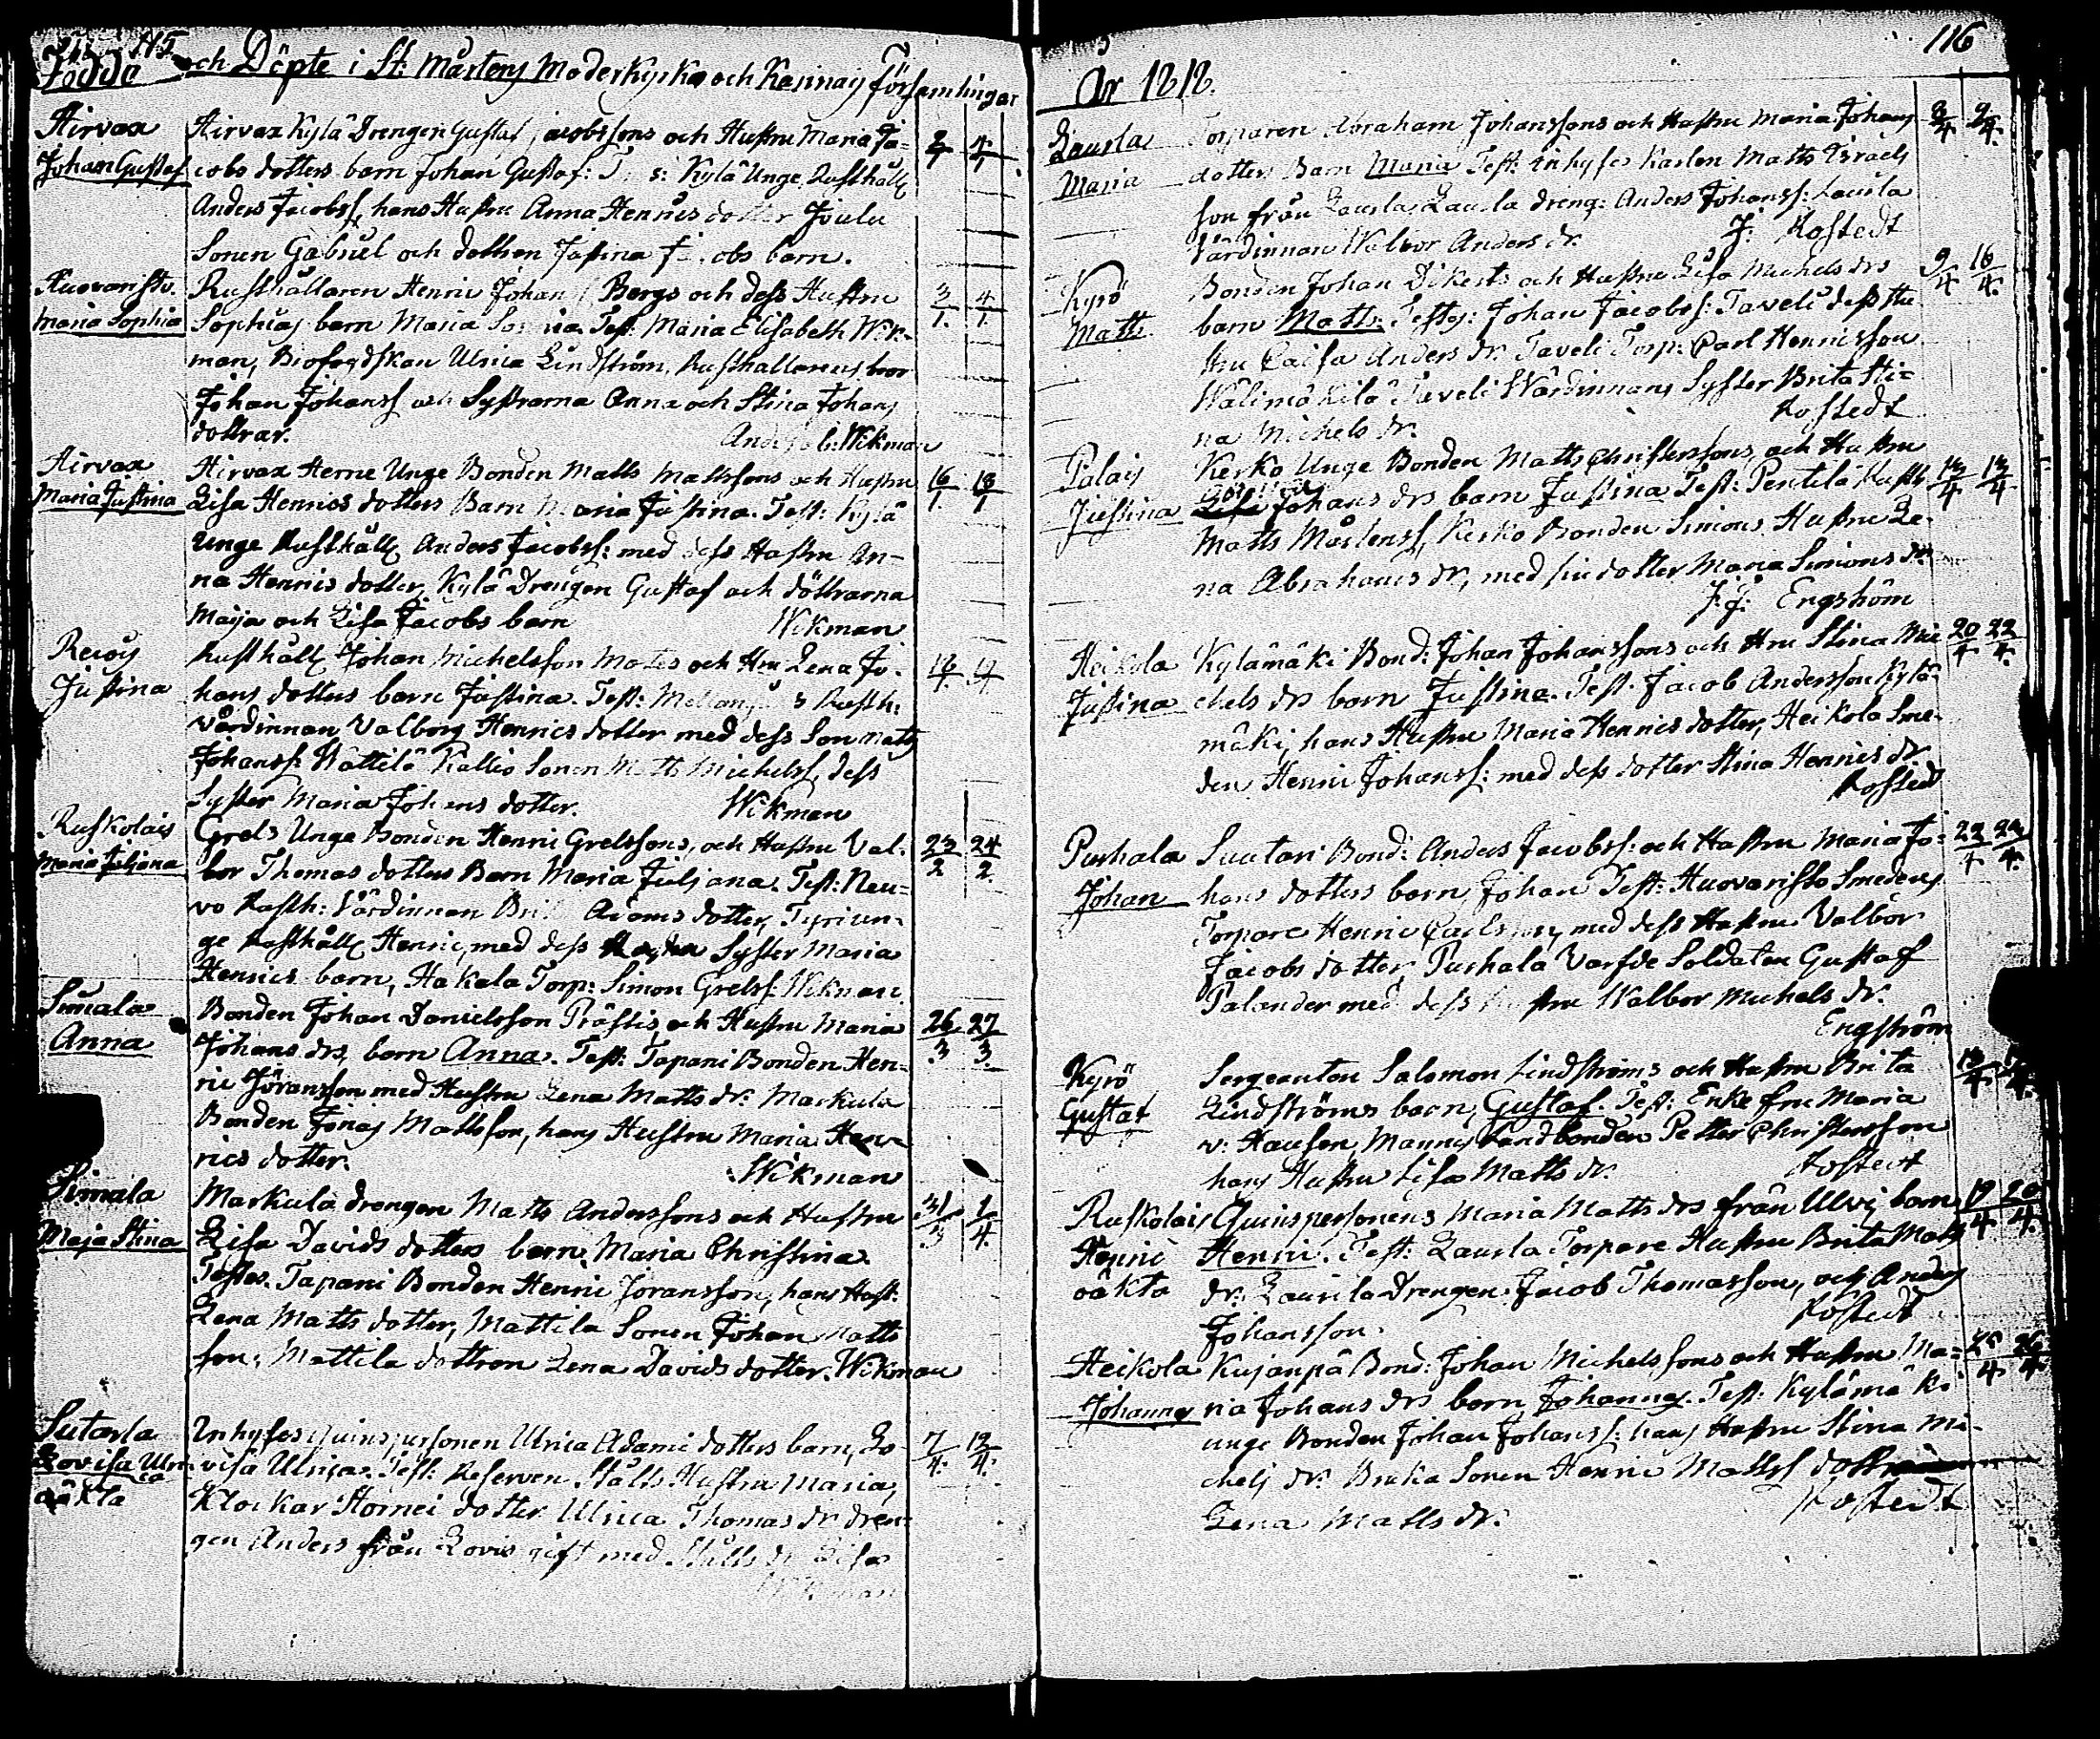 115.
Födde och Döpte i St: Mårtens Moderkyrka och Karinais Församlingar
Airvax Airvax Kylä Drengen Gustaf Jacobssons och Hustru Maria Ja= 2/1 4/1
Johan Gustaf cobs dotters barn Johan Gustaf: Kylä Unge Rusthåll
Anders Jacobss, hans Hustru Anna Henrics dotter Joulu
Sonen Gabriel och dottren Justina Jacobs barn.
Huovaristo. Rusthållaren Henric Johan Bergs och dess Hustru 3/1. 4/1.
Maria Sophia Sophias barn Maria Sophia. Test: Maria Elisabeth Wik-
man, Ulrica Lindström, Rusthållarens bror
Johan Johanss och Systrarna Anna och Stina Johans
dottrar. Wikman
Airvax Airvax Herne Unge Bonden Matts Mattssons och Hustru 16/1. 18/1
Maria Justina Lisa Henrics dotters Barn Maria Justina. Test: Kylä
Unge Rusthåll Anders Jacobss: med dess Hustru An-
na Henrics dotter, Kylä Drengen Gustaf och döttrarna
Maija och Lisa Jacobs barn Wikman
Justina Rusthåll Johan Michelsson och Hru Lena Jo-
hans dotters barn Justina. Test: Rusth:
Värdinnan Valborg Henrics dotter med dess Son Matts
Johanss: Wättilä Kallio Sonen Matts Michelss, dess
Syster Maria Johans dotter. Wikman
Ruskolais Grels Unge Bonden Henric Grelssons, och Hustru Val- 23/2 24/2.
Maria Juljana bor Thomas dotters Barn Maria Juljana. Test: Neu=
vo Rusth: Värdinnan Adams dotter, Tyri un-
ge Rusthåll Henric, med dess Syster Maria
Henrics barn, Hakala Torp: Simon Grelss: Wikman.
Simala Bonden Johan Danielsson Prästis, och Hustru Maria 26/3 27/3.
Anna Johans drs, barn Anna. Test: Tapani Bonden Hen=
ric Jöransson med Hustru Lena Matts dr: Markula
Bonden Jonas Mattsson, hans Hustru Maria Hen=
rics dotter. Wikman
Simala Markula drengen Matts Anderssons och Hustru 31/3 1/4.
Maja Stina Lisa Davids dotters barn Maria Christina.
Testes. Tapani Bonden Henric Joransson, hans Hust:
Lena Matts dotter, Mattila Sonen Johan Matts
son, Mattila dottron Lena Davids dotter. Wikman
Sutarla Inhyses quinspersonen Ulrica Adami dotters barn, Lo- 7/4. 12/4.
Lovisa Ulrica visa Ulrica. Test: Reserven Ståls Hustru Maria,
oäkta Klockar Hornei dotter Ulrica Thomas dr dren=
gen Anders från Lovis gift med Ståls dr Lisa
116
År 1818.
Laurla Torparen Abraham Johanssons och Hustru Maria Johans 8/4 9/4.
Maria dotters Barn Maria Test: inhyses Karlen Matts Israels
son från Laurla, Laurla dreng: Anders Johanss: Laurla
Värdinnan Walbor Anders dr. J: Rostedt
Kyrö Bonden Johan Dikerts och Hustru Lisa Michels drs 9/4 16/4.
Matts barn Matts. Testes: Johan Jacobss: Taveli dess Hu
stru Caisa Anders dr. Taveli Torp: Carl Henricsson
Välimäkilä Taveli Wärdinnans Syster Brita Sti=
na Michels dr. Rostedt
Palais Kerko Unge Bonden Matts Christerssons, och Hustru
Justina Johans drs barn Justina Test: Pentilä Rusth 13/4 13/4
Matts Mårtenss, Kerko Bonden Simons Hustru Le-
na Abrahams dr, med sin dotter Maria Simons dr
J: J: Engström
Heikola Kylämäki Bond: Johan Johanssons och Hru Stina Mi 20/4 22/4.
Justina chels drs barn Justina. Test. Jacob Andersson Kylä-
mäki, hans Hustru Maria Henrics dotter, Heikola Sme-
den Henric Johanss: med dess dotter Stina Henrics dr.
Rosted
Purhala Suutari Bond: Anders Jacobss: och Hustru Maria Jo= 22/4 24/4.
Johan hans dotters barn, Johan Test: Huovaristo Smedens
Torpare Henric Carlsson, med dess Hustru Valbor
Jacobs dotter, Purhala Varfde Soldaten Gustaf
Palander med dess Hustru Walbor Michels dr.
Engström
Kyrö Sergeanten Salomon Lindströms och Hustru Brita
Gustaf Lindströms barn, Gustaf. Test: Enke fru Maria
v: Hausen, Maunus Landbonden Petter Christersson
hans Hustru Lisa Matts dr. Rostedt
Ruskolais Quinspersonens Maria Matts drs från Ulvi barn 19/4 20/4.
Henric Henric. Test: Laurla Torpare Hustru Brita Matts
oäkta dr: Laurila Drengen Jacob Thomasson, och Anders
Johansson. Rostedt
Heikola Kujanpä Bond: Johan Michelssons och Hustru Ma= 25/4 26/4
Johannes ria Johans drs barn Johannes. Test: Kylämäki
unge Bonden Johan Johanss: hans Hustru Stina Mi-
chels dr. Sonen Henric Matts
Lena Matts dr. Rostedt